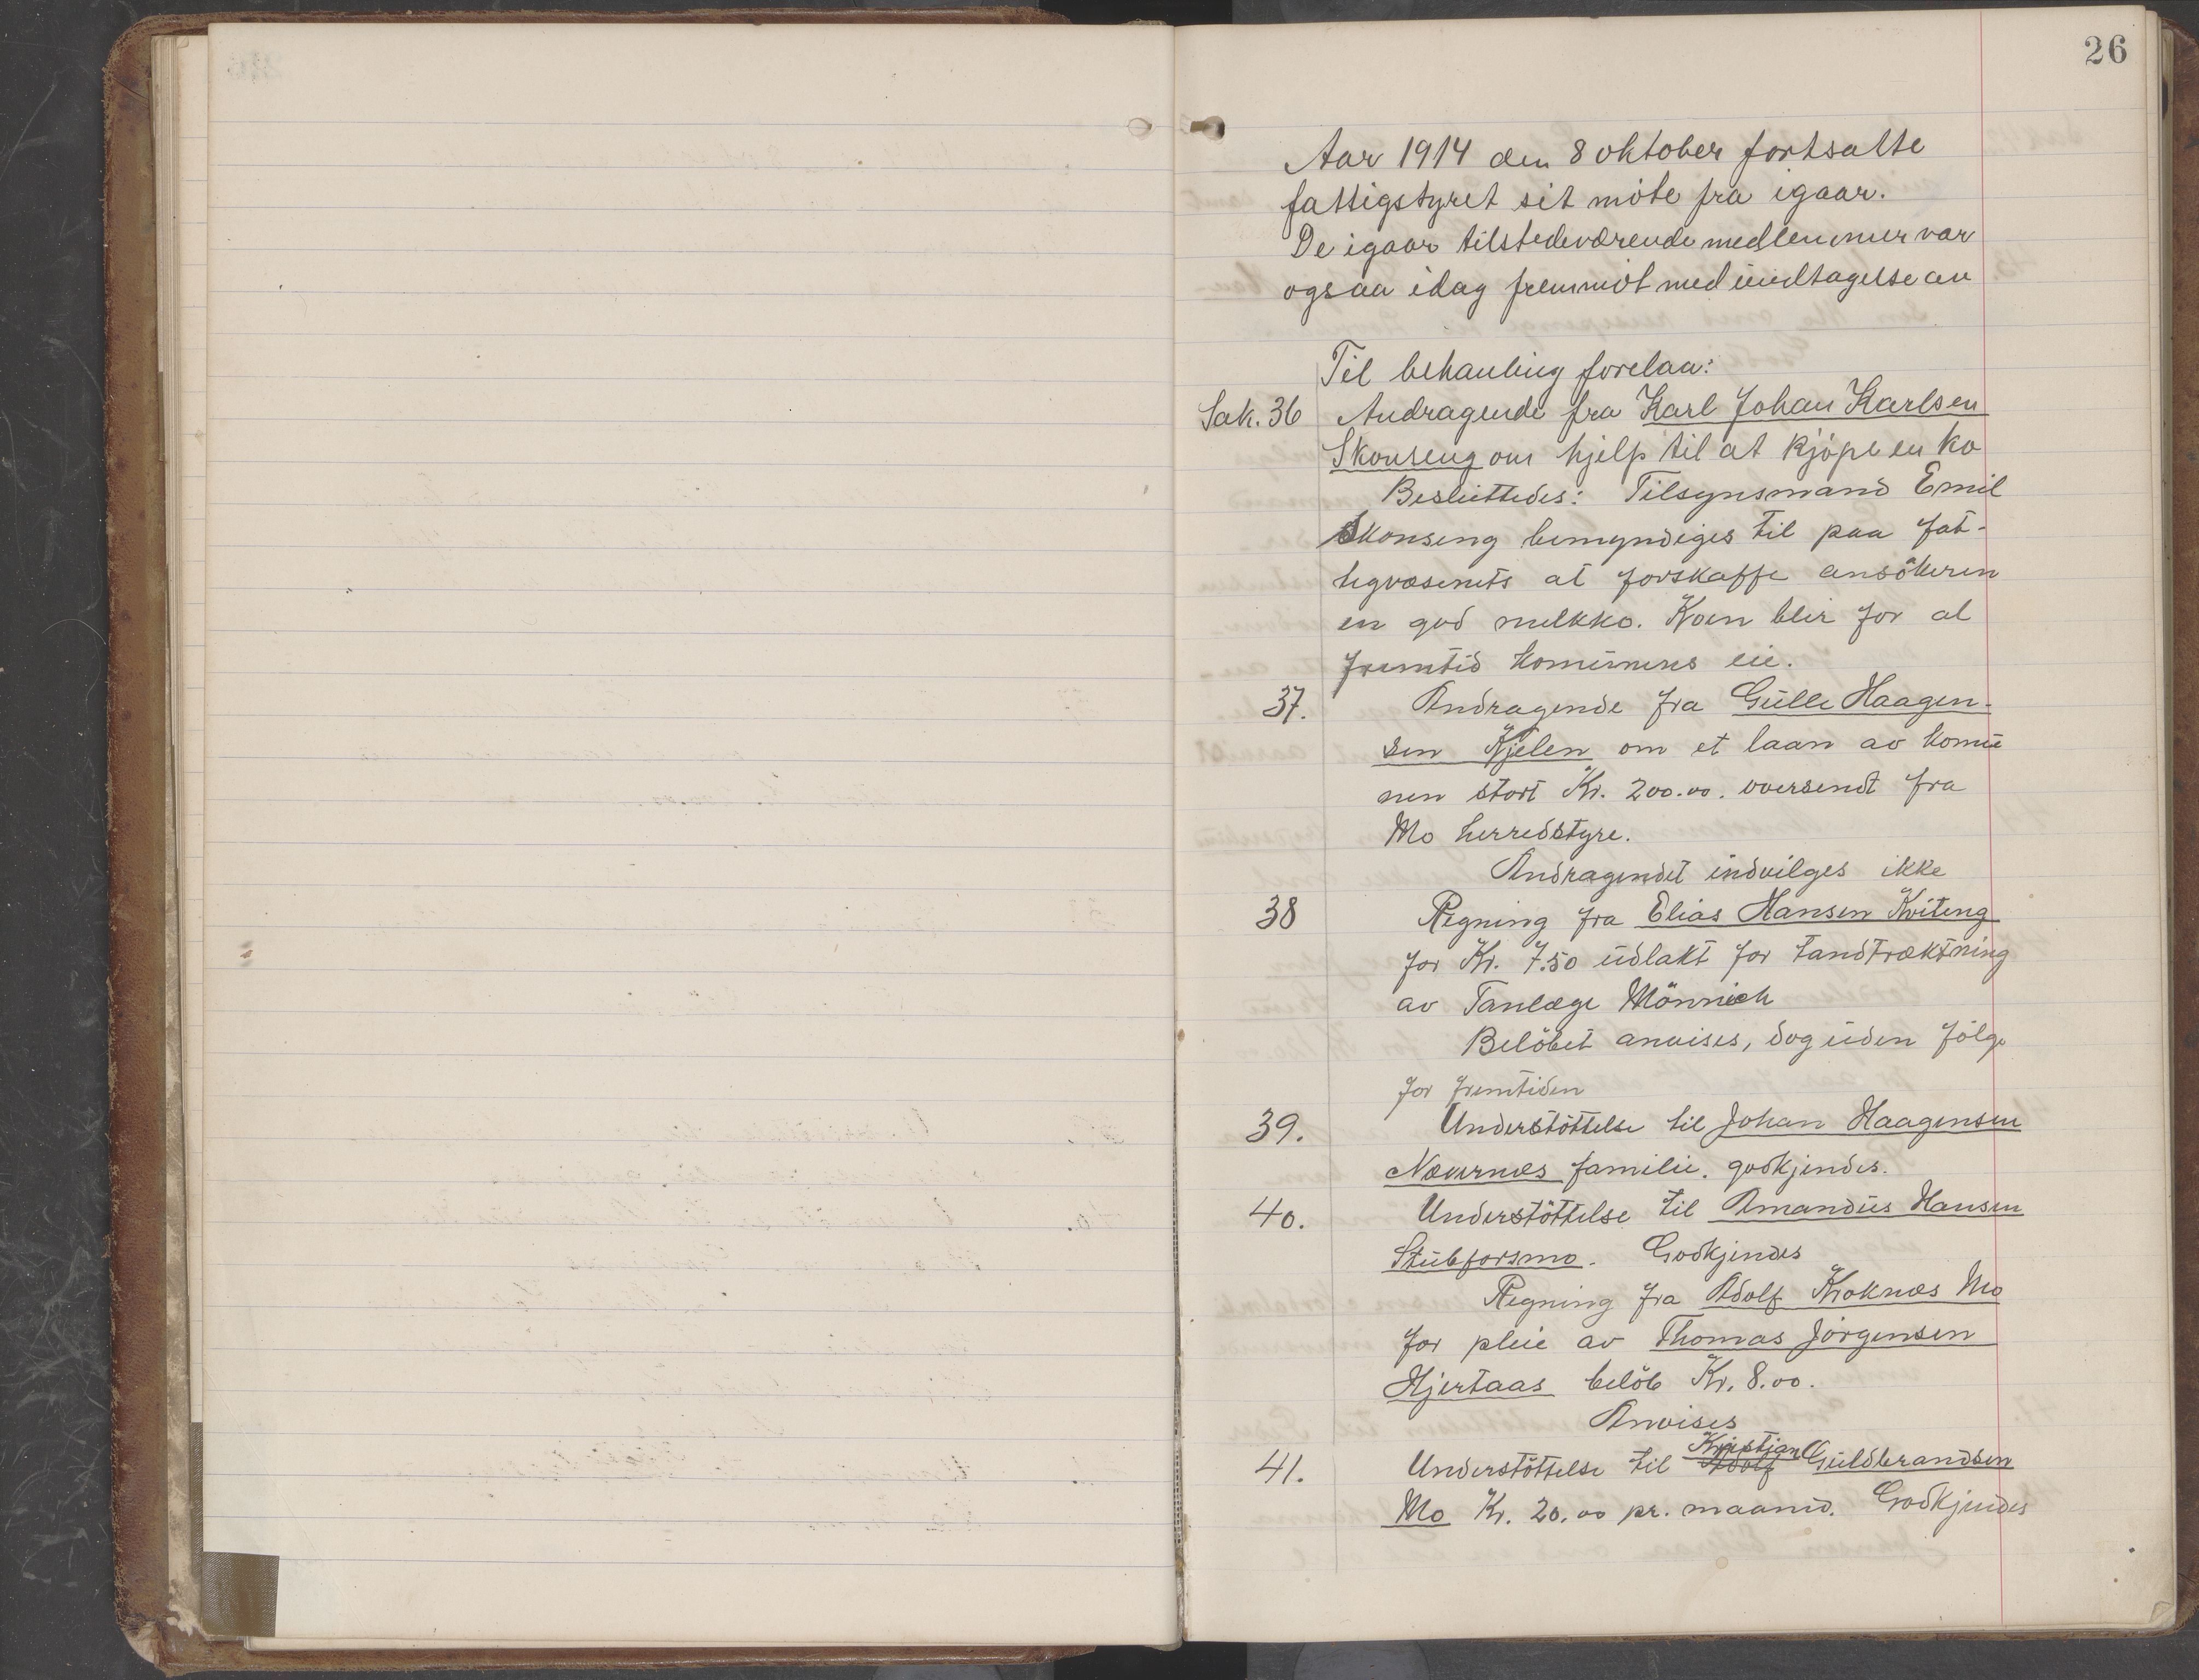 26
Aar 1914 den 8 oktober fortsatte
fattigstyret sit möte fra igaar.
De igaar tilstedeværende medlemmer var
ogsaa idag fremmöt med undtagelse av
Til behanling forelaa:
Sak. 36 Andragende fra Karl Johan Karlsen
Skonseng om hjelp til at kjöpe en ko
Besluttedes: Tilsynsmand Emil
Skonseng bemyndiges til paa fat-
tigvæsenets at forskaffe ansökeren
en god melkko. Koen blir for al
fremtid komunens eie.
37. Andragende fra Gulle Haagen-
sen Kjelen om et laan av komu
nen stort Kr. 200.00. oversendt fra
Mo herredstyre.
Andragendet indvilges ikke
38 Regning fra Elias Hansen Kviteng
for Kr. 7.50 udlakt for tandtræktning
av Tanlæge Mönnich
Belöbet anvises, dog uden fölge
for fremtiden
39. Understöttelse til Johan Haagensen
Nævernes familie. godkjendes.
40. Understöttelse til Amandus Hansen
Stubforsmo. Godkjendes
Regning fra Adolf Kroknæs Mo
for pleie av Thomas Jörgensen
Hjertaas belöb Kr. 8.00.
Anvises
Kristjan
41. Understöttelse til Adolf Guldbrandsen
Mo Kr. 20.00 pr. maaned. Godkjendes